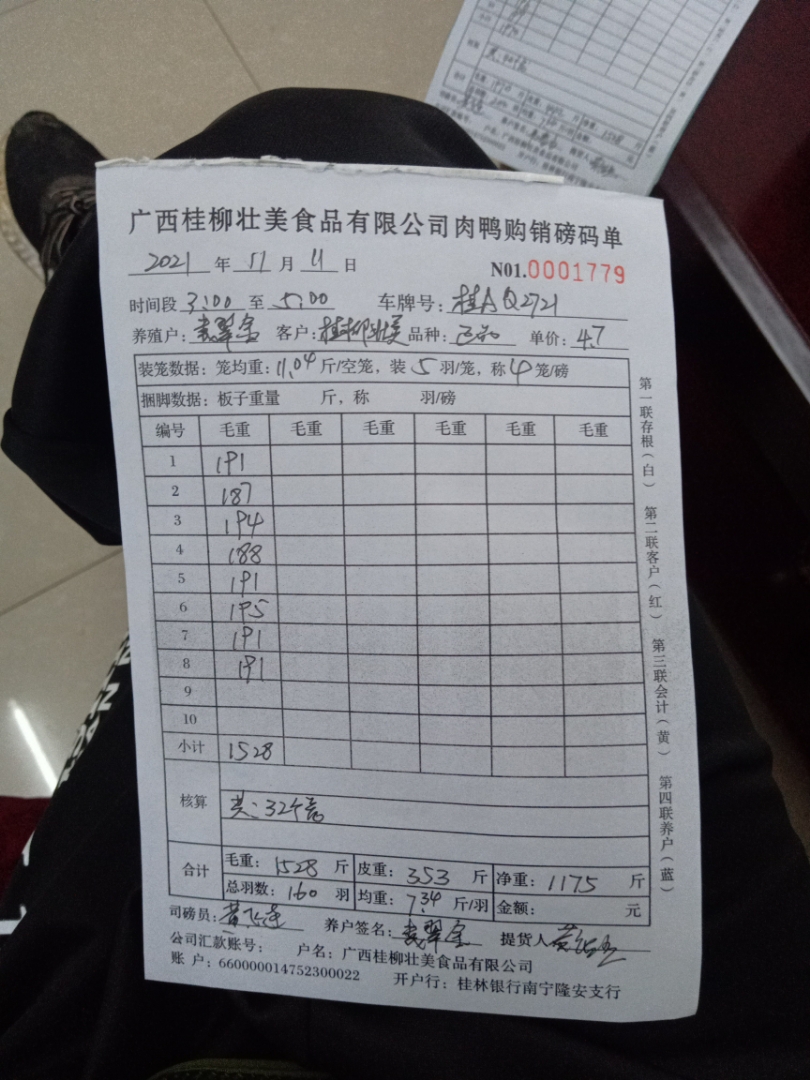 广西桂柳壮美食品有限公司肉鸭购销磅码单
2021 年 11 月 11 日 N01.0001779
时间段 3:00 至 5:00 车牌号: 桂AQ2721
养殖户: 客户: 桂柳壮美 品种: 正品 单价: 4.7
装笼数据: 笼均重: 11.04 斤/空笼, 装 5 羽/笼, 称 4 笼/磅
捆脚数据: 板子重量 斤, 称 羽/磅
编号 毛重 毛重 毛重 毛重 毛重 毛重
1 191
2 187
3 194
4 188
5 191
6 195
7 191
8 191
9
10
小计 1528
核算 共: 32个笼
合计 毛重: 1528 斤 皮重: 353 斤 净重: 1175 斤
总羽数: 160 羽 均重: 7.34 斤/羽 金额: 元
司磅员: 养户签名: 提货人
公司汇款账号: 户名: 广西桂柳壮美食品有限公司
账户: 660000014752300022 开户行: 桂林银行南宁隆安支行
第一联存根(白) 第二联客户(红) 第三联会计(黄) 第四联养户(蓝)